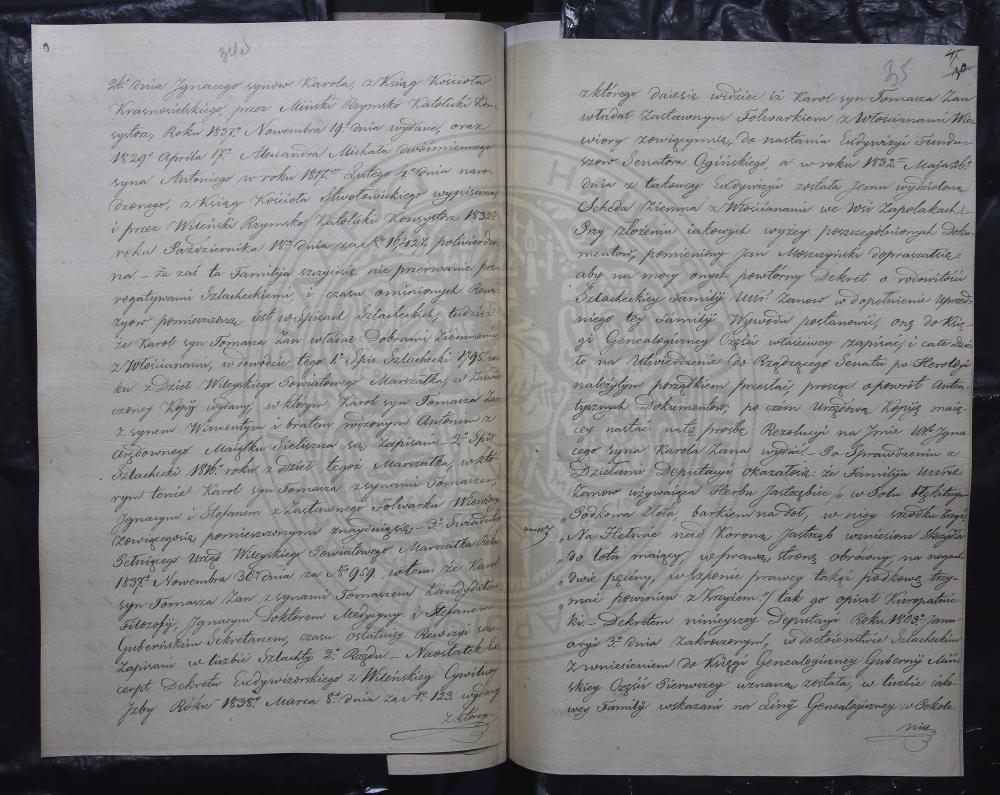 34
26º dnia Ignacego synów Karola, z Ksiąg Kościoła
Krasnosielskiego przez Miński Rzymsko Katolicki Kon-
systorz, Roku 1837º Nowembra 19º dnia wydane, oraz
1829º Aprila 17º Alexandra Michała dwóimiennego
syna Antoniego w roku 1817ym Lutego 4º dnia naro-
dzonego, z Ksiąg Kościoła wypisana
i przez Wileński Rzymsko Katolicki Konsystorz 1832º
roku Października 18º dnia za Nº potwierdzo-
na – że zaś ta Familija szczyciła się nie przerwanie pre-
rogatywami Szlacheckiemi, i czasu ominionych Rewi-
zyow pomieszczoną jest w Spisach Szlacheckich, tudzież
że Karol syn Tomasza Zan władał Dobrami Ziemnemi
z Włościanami, w dowodzie tego 1º Spis Szlachecki 1795º ro-
ku z Dzieł Wileyskiego Powiatowego Marszałka, w Zaświad-
czoney Kopij wydany, w którym Karol syn Tomasza Zan
z synem Wincentym i bratem rodzonym Antonim z
Arędownego Maiątku Sieliszcza są Zapisani – 2º Spis
Szlachecki 1816º roku z dzieł tegoż Marszałka, w któ-
rym tenże Karol syn Tomasza z synami Tomaszem,
Ignacym i Stefanem z Zastawnego Folwarku Wiewiory
Zowiącegosię pomieszczonymi znayduiąsię – 3º Świadectwo
Setniącego Urząd Wileyskiego Powiatowego Marszałka Roku
1837º Nowembra 30º dnia za Nº 959. w tem: że Karol
syn Tomasza Zan z synami Tomaszem Kandydatem
Filozofij, Ignacym Doktorem Medycyny i Stefanem
Guberńskim Sekretarzem, czasu ostatniey Rewizyi są
Zapisani w liczbie Szlachty 2º Rzędu – Naostatek Ex-
cerpt Dekretu Exdywizorskiego z Wileńskiey Cywilney
Izby Roku 1838º Marca 8º dnia za Nº 123 wydany
z którego
35
z którego daiesię widzieć iż Karol syn Tomasza Zan
władał Zastawnym Folwarkiem z Włościanami Wie-
wiory zowiącymsię, do nastania Exdywizyi Fundu-
szow Senatora Ogińskiego, a w roku 1832m Maja 26º
dnia z takowey Exdywizyi została Jemu wydzieloną
Scheda Ziemna z Włościanami we Wsi Zapolakach. –
Przy złożeniu iakowych wyżey poszczególnionych doku-
mentow, pomieniony Jan Moszczyński dopraszałsię:
aby na mocy onych powtórny Dekret o rodowitości
Szlacheckiey Familij Zanow w dopełnienie Uprzed-
niego tey Familij Wywodu postanowić, oną do Księ-
gi Genealogiczney Części właściwey zapisać, i całe dzie-
ło na Utwierdzenie do Rządzącego Senatu po Heroldyi
należytym porządkiem przesłać, prosząc o powrót Auten-
tycznych Dokumentow, po czem Urzędową Kopiję maią-
cey nastać natę prośbę Rezolucyi na Imie Igna-
cego syna Karola Zana wydać. – Po Sprawdzeniu z
Dziełami Deputacyi okazałosię: że Familija
Zanow używaiąca Herbu Jastrzębiec „w Polu błękitnym
„Podkowa złota, barkiem nadoł, w niey szrodku Krzyż
„Na Hełmie nad Koroną Jastrząb wzniesione Skrzydła
„do lotu maiący, w prawą stronę obrócony, na nogach
„dwie pęciny, w szponie prawey takąż podkowę trzy-
„mać powinien z Krzyżem." tak go opisał Kuropatnic-
ki. – Dekretem niniejszey Deputacyi Roku 1803º Janu-
aryi 3º dnia Zakroczonym, w dostoieństwie Szlacheckim
z wniesieniem do Księgi Genealogiczney Gubernij Miń-
skiey Części Pierwszey uznana została, w liczbie iako-
wey Familij wskazani na Linij Genealogiczney w Pokole-
niu